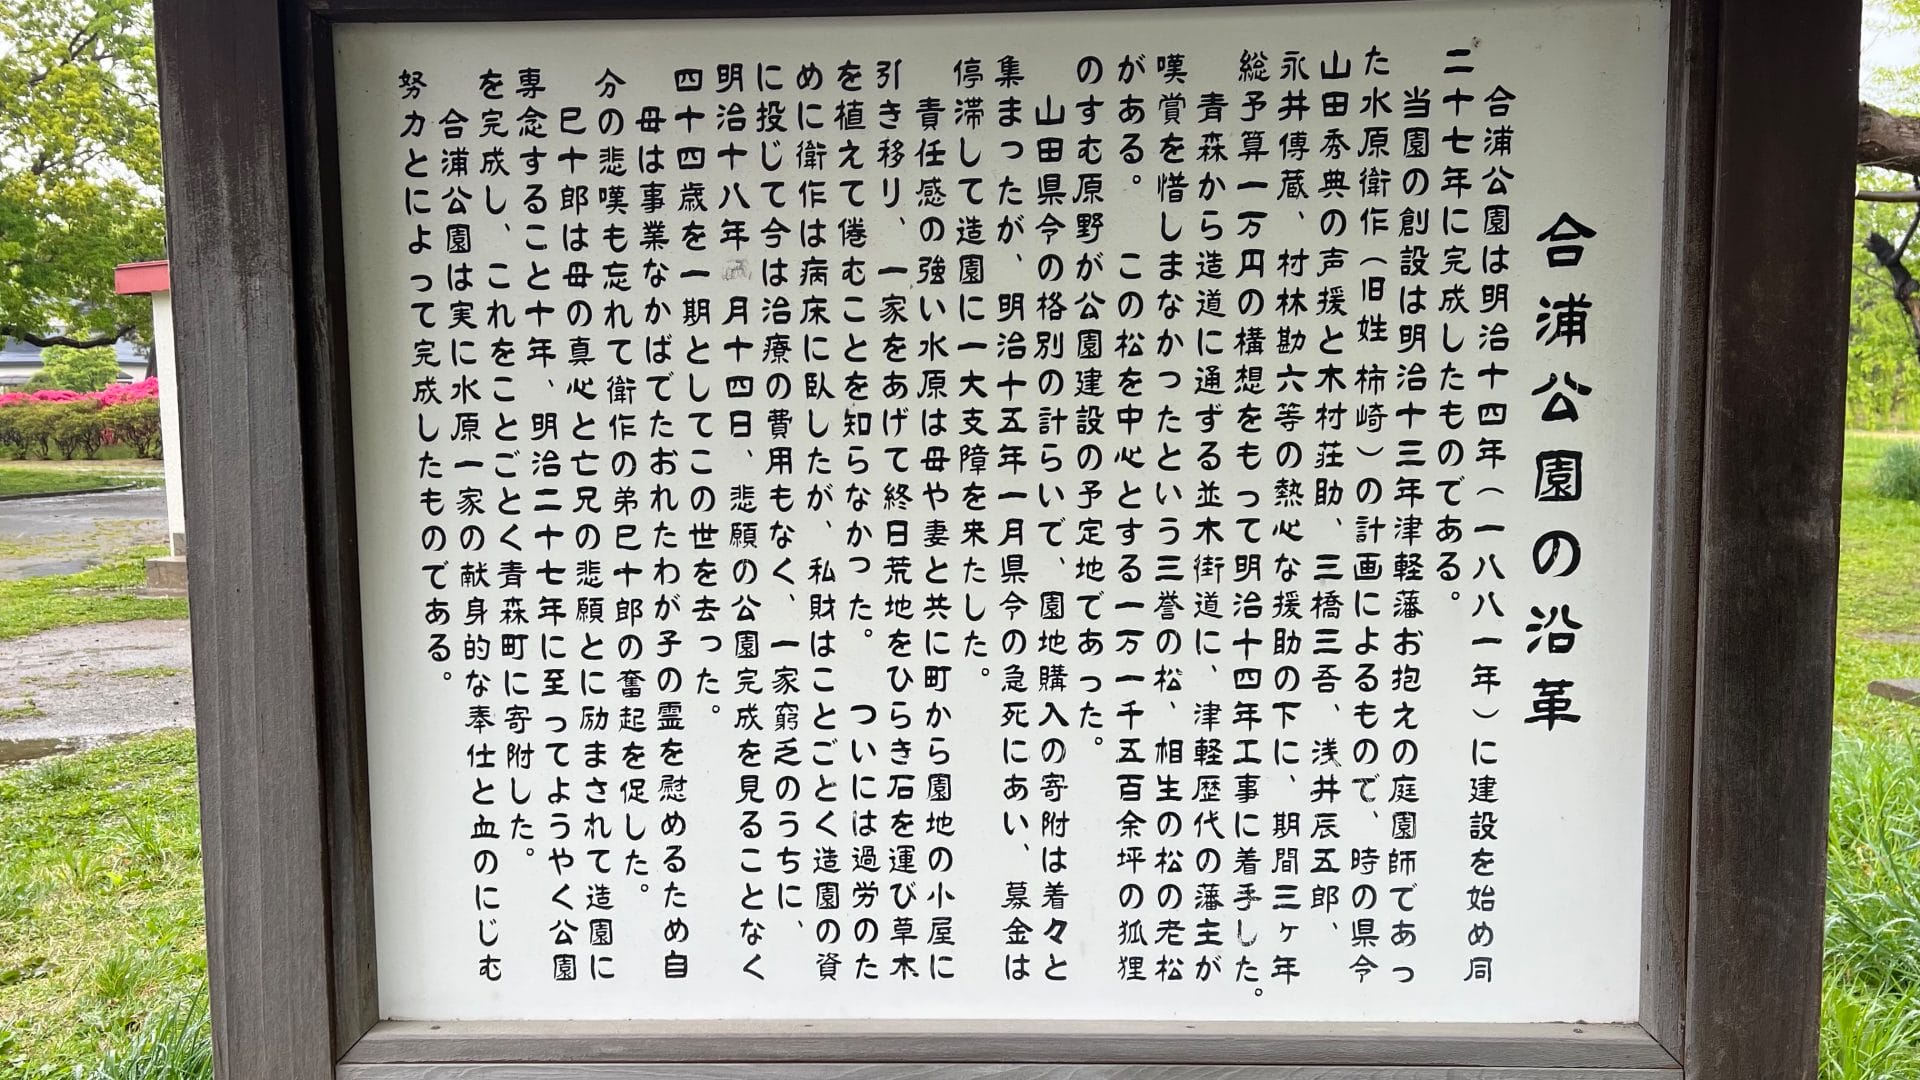 合浦公園の沿革
合浦公園は明治十四年（一八八一年）に建設を始め同
二十七年に完成したものである。
当園の創設は明治十三年津軽藩お抱えの庭園師であっ
た水原衛作（旧姓 柿崎）の計画によるもので、時の県令
山田秀典の声援と木村荘助、三橋三吾、浅井辰五郎、
永井傳蔵、村林勘六等の熱心な援助の下に、期間三ヶ年
総予算一万円の構想をもって明治十四年工事に着手した。
青森から造道に通ずる並木街道に、津軽歴代の藩主が
嘆賞を惜しまなかったという三誉の松、相生の松の老松
がある。 この松を中心とする一万一千五百余坪の狐狸
のすむ原野が公園建設の予定地であった。
山田県令の格別の計らいで、園地購入の寄附は着々と
集まったが、明治十五年一月県令の急死にあい、募金は
停滞して造園に一大支障を来たした。
責任感の強い水原は母や妻と共に町から園地の小屋に
引き移り、一家をあげて終日荒地をひらき石を運び草木
を植えて倦むことを知らなかった。 ついには過労のた
めに衛作は病床に臥したが、私財はことごとく造園の資
に投じて今は治療の費用もなく、一家窮乏のうちに、
明治十八年 月十四日、悲願の公園完成を見ることなく
四十四歳を一期としてこの世を去った。
母は事業なかばでたおれたわが子の霊を慰めるため自
分の悲嘆も忘れて衛作の弟巳十郎の奮起を促した。
巳十郎は母の真心と亡兄の悲願とに励まされて造園に
専念すること十年、明治二十七年に至ってようやく公園
を完成し、これをことごとく青森町に寄附した。
合浦公園は実に水原一家の献身的な奉仕と血のにじむ
努力とによって完成したものである。